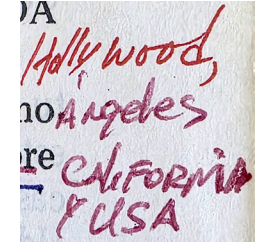 DA
Hollywood,
no Angeles
ore CALIFORNIA
Y USA